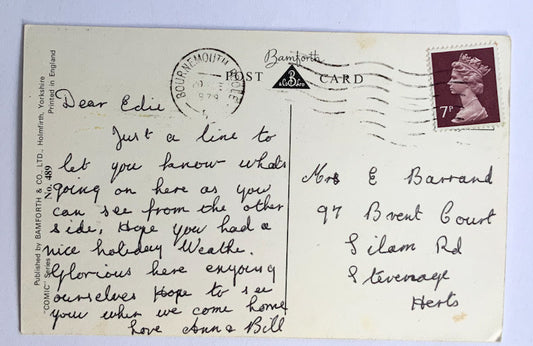 Published by BAMFORTH & CO. LTD., Holmfirth, Yorkshire
"COMIC" Series No. 489
Printed in England
Bamforth
POST CARD
BOURNEMOUTH POOLE
7P
Dear Edie
Just a line to
let you know whats
going on here as you
can see from the other
side, Hope you had a
nice holiday Weathe.
Glorious here enjoying
ourselves Hope to see
you when we come home
love Ann & Bill
Mrs E Barrand
97 Brent Court
Silam Rd
Stevenage
Herts